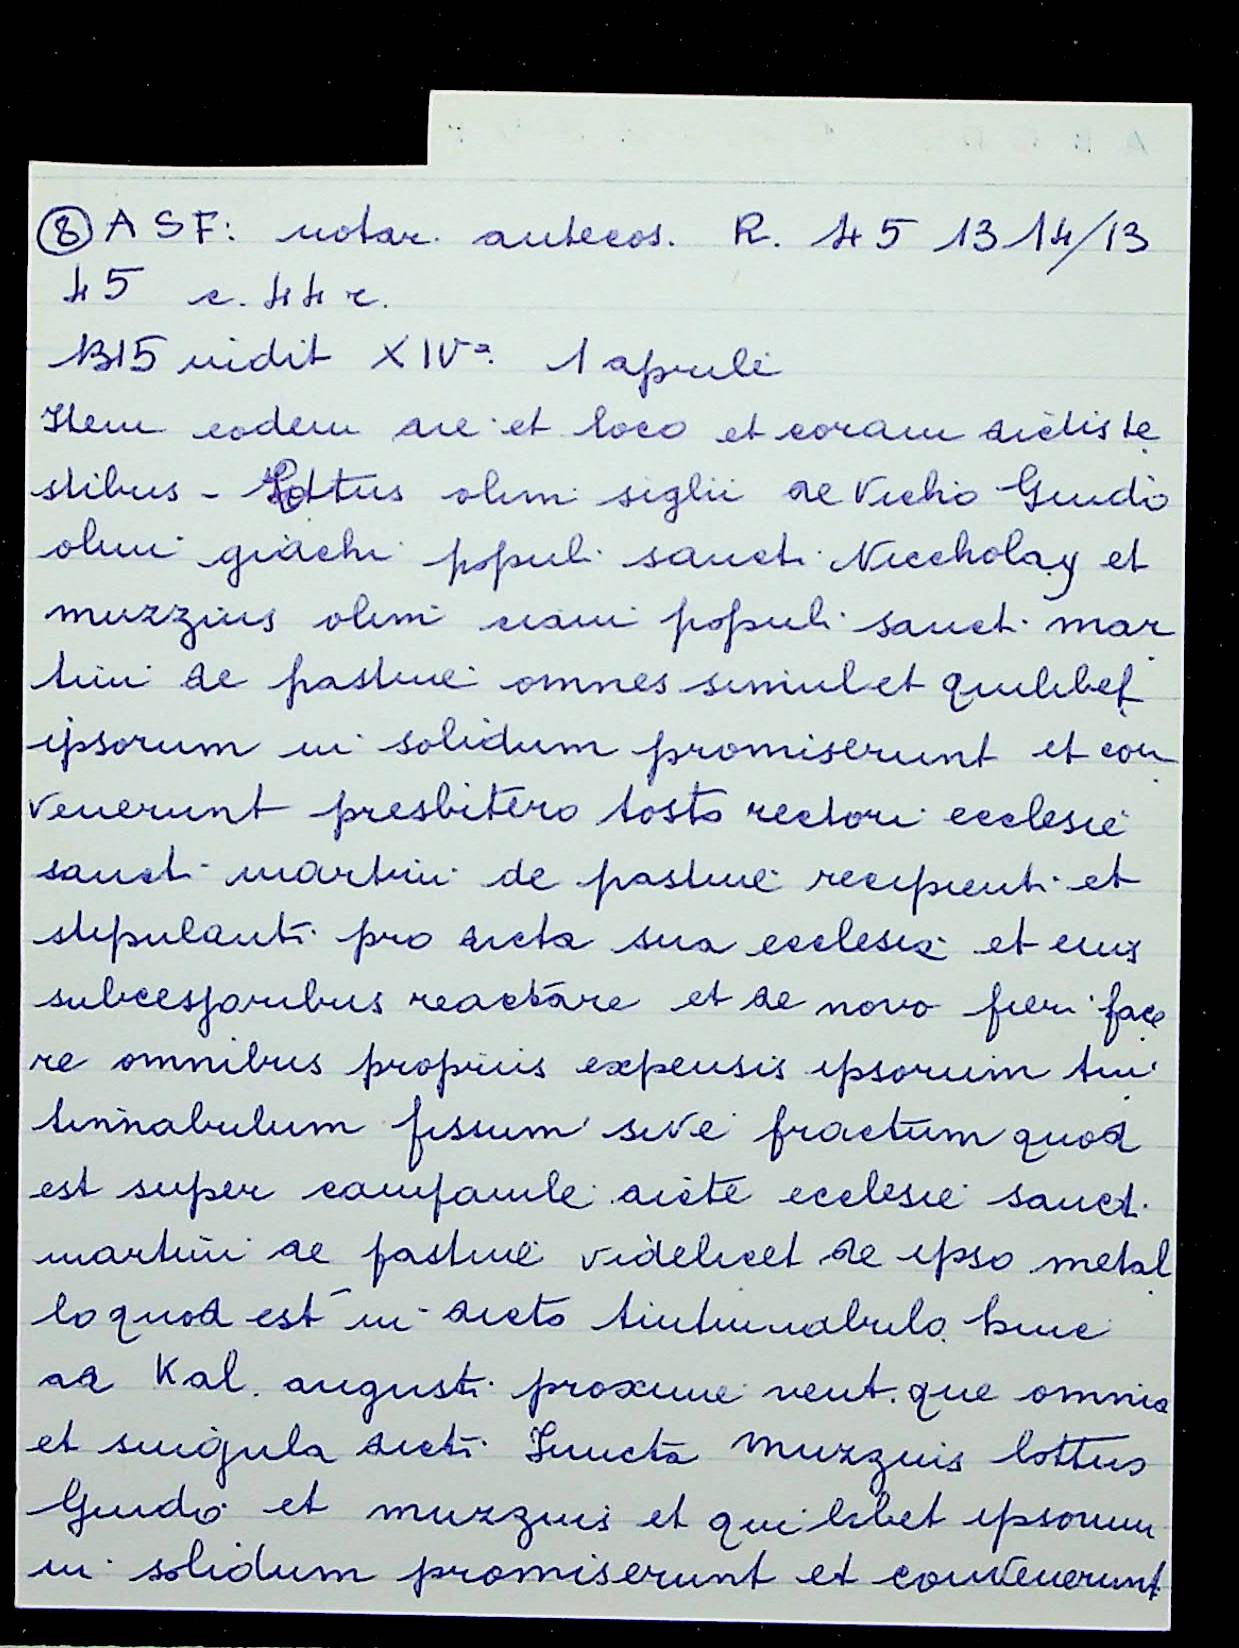 ⑧ ASF: notar. antecos. R. 45 1314/13
45 c. 44 r.
1315 indit XIVª. 1 aprile
Item eodem die et loco et coram dictis te
stibus - Lottus olim siglii de Vichio Guido
olim giachi populi sancti Niccholay et
muzzius olim ciani populi sancti mar
tini de pastine omnes simul et quilibet
ipsorum in solidum promiserunt et con
venerunt presbitero tosto rectori ecclesie
sancti martini de pastine recipienti et
stipulanti pro dicta sua ecclesia et eius
subcessoribus reactare et de novo fieri face
re omnibus propriis expensis ipsorum tin
tinnabulum fissum sive fractum quod
est super campanile dicte ecclesie sancti
martini de pastine videlicet de ipso metal
lo quod est in dicto tintinnabulo hinc
ad Kal. augusti proxime vent. que omnia
et singula dicti Iuncta muzzius lottus
Guido et muzzius et quilibet ipsorum
in solidum promiserunt et convenerunt